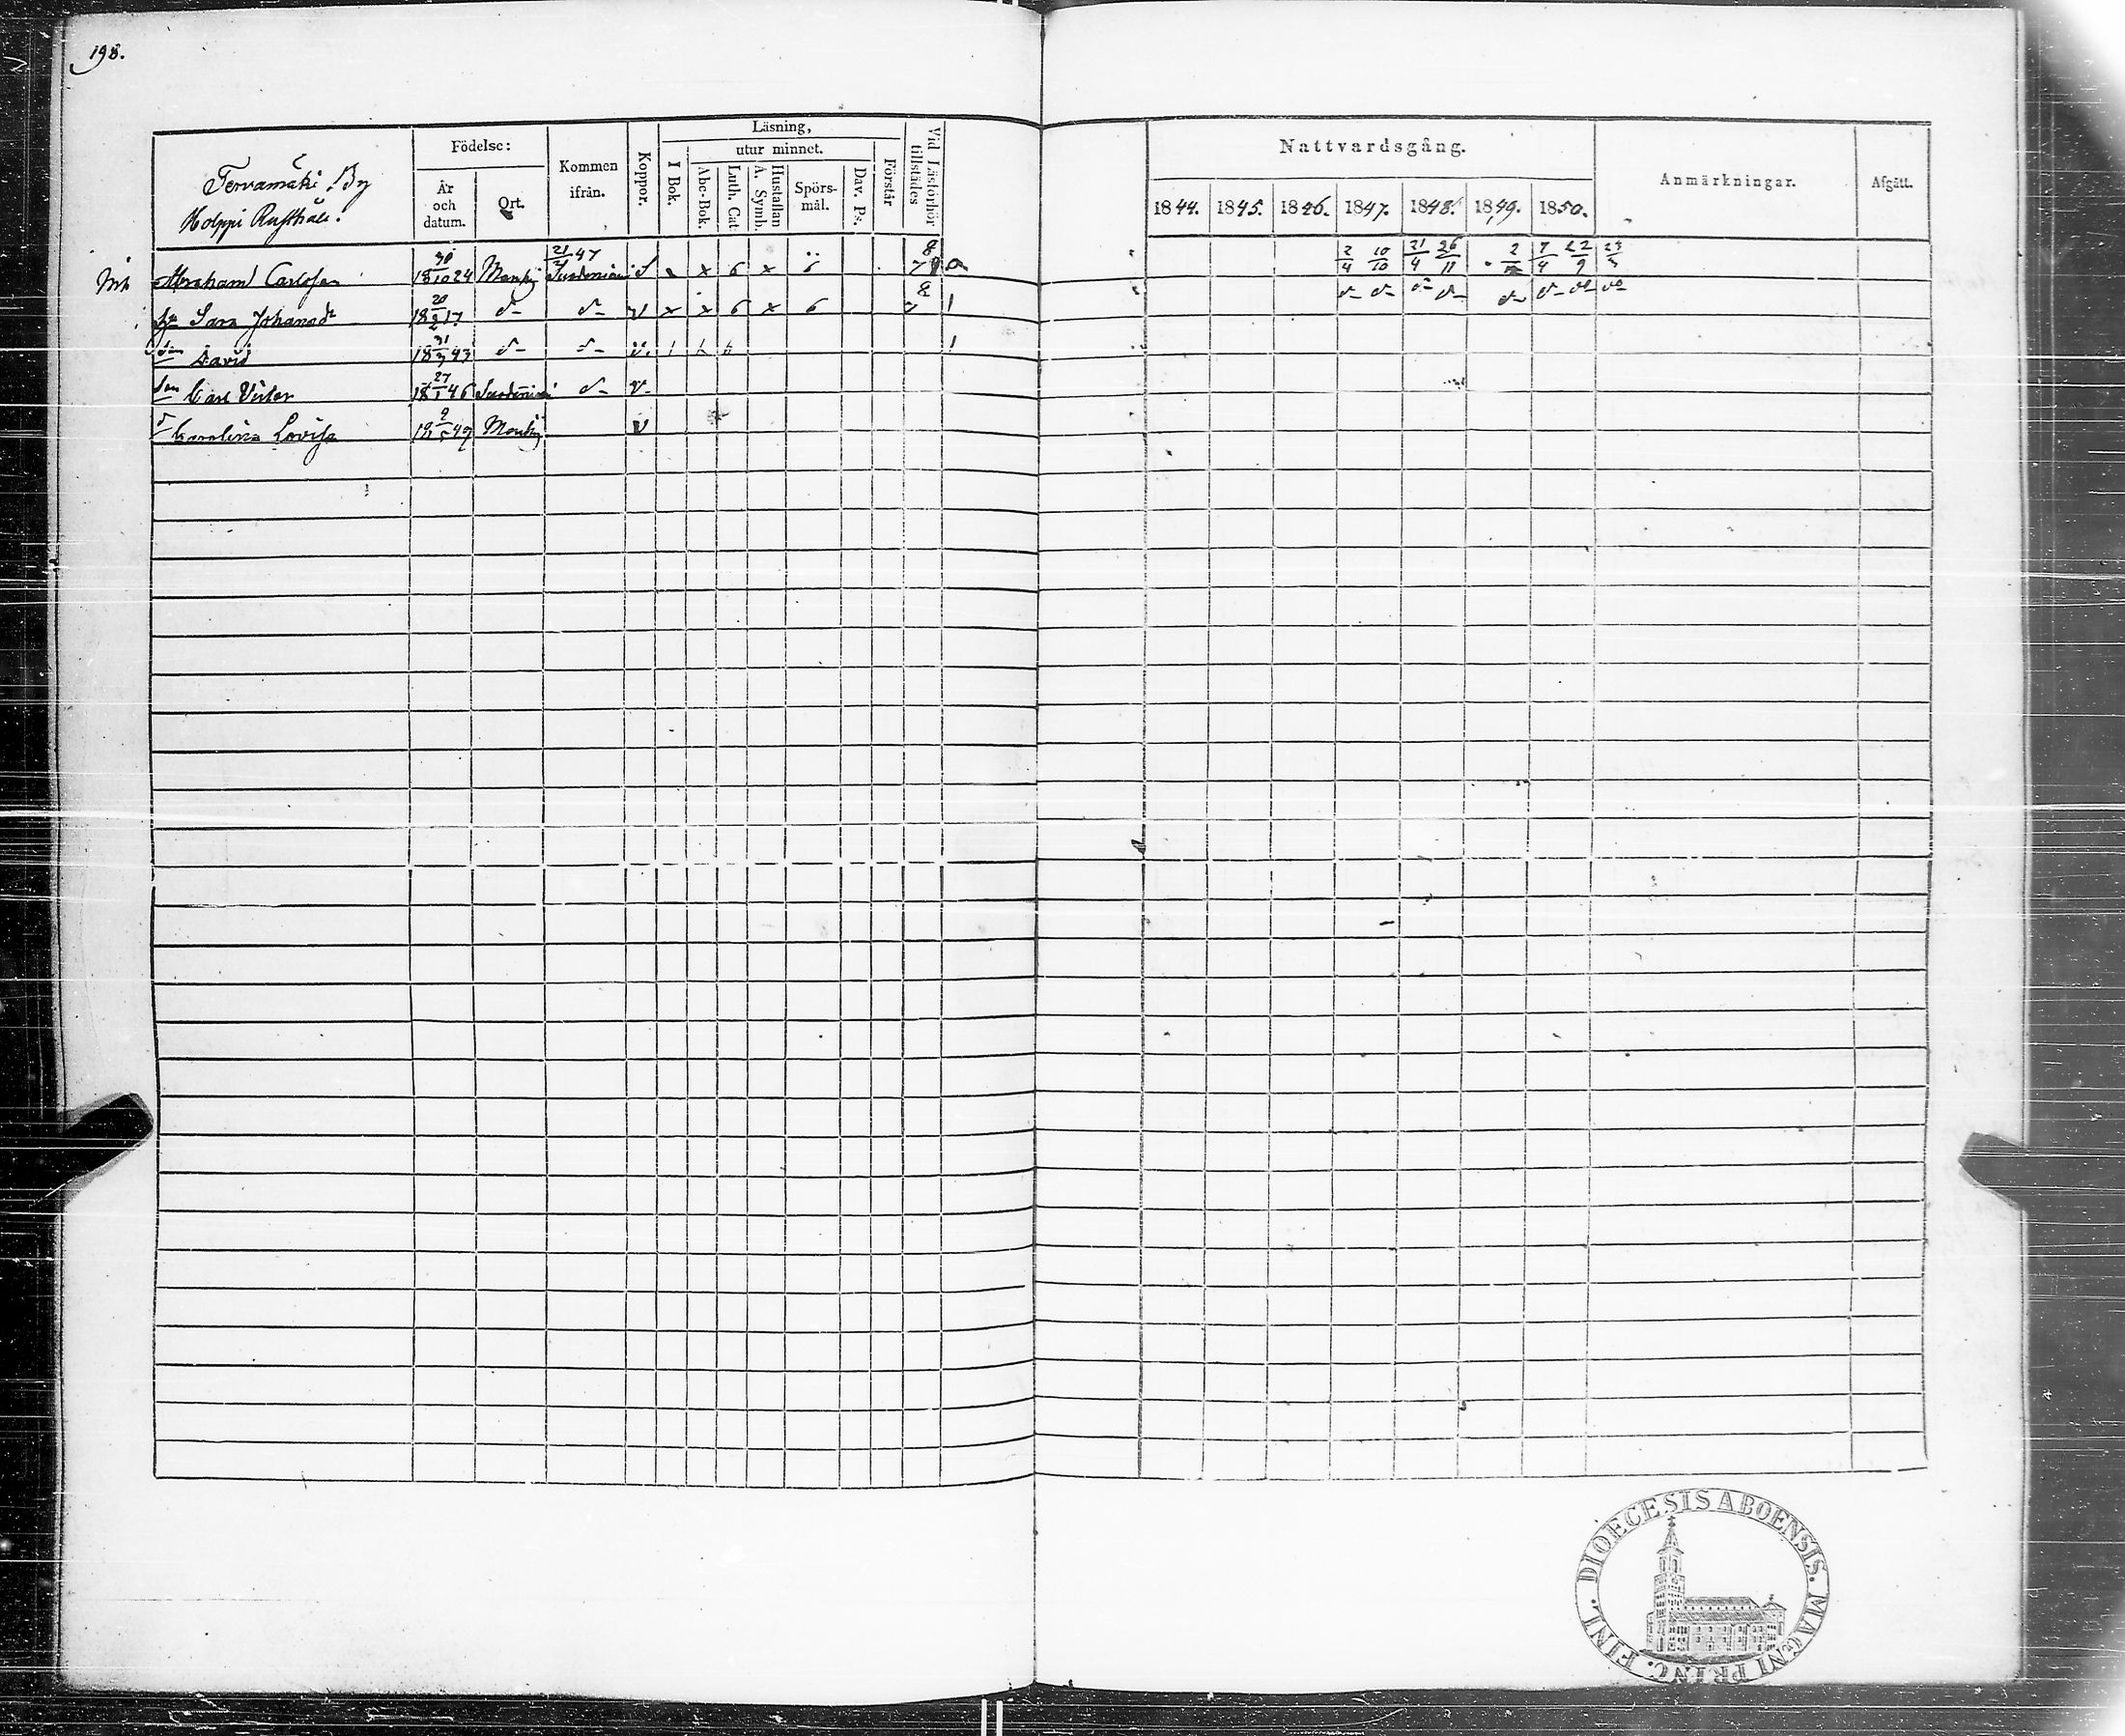 198.
Tervamäki By
Holppi Rusthåll.
Födelse:
År och datum.
Ort.
Kommen ifrån.
Koppor.
Läsning,
I Bok.
utur minnet.
Abc-Bok.
Luth. Cat
Hustaflan A. Symb.
Spörsmål.
Dav. Ps.
Förstår
Vid Läsförhör tillstädes
Nattvardsgång.
1844. 1845. 1846. 1847. 1848. 1849. 1850.
Anmärkningar.
Afgått.
Abraham Carlsson 18 30/10 24 21/47 x 6 x 6 8 7 2/4 10/10 21/4 26/11 7/4 22/9
Sara Johansdr 18 20/2 17 v x x 6 x 6 8 7 1
David 18 31/3 43 v. 1
Carl Victor 18 27/1 46 v
Carolina Lovisa 18 49 v
DIOECESIS ABOENSIS. MAGNI PRINC. FINL.